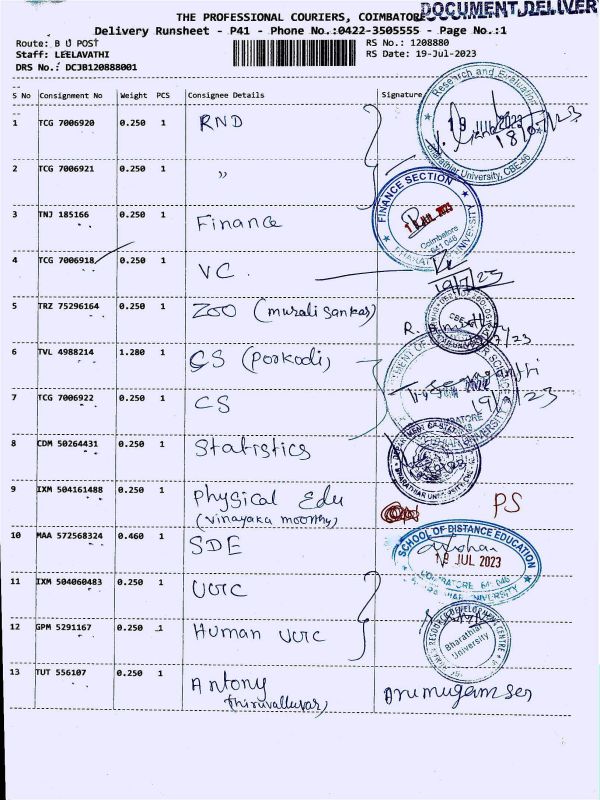 DOCUMENT DELIVER
THE PROFESSIONAL COURIERS, COIMBATORE
Delivery Runsheet - P41 - Phone No.:0422-3505555 - Page No.:1
Route: B U POST RS No.: 1208880
Staff: LEELAVATHI RS Date: 19-Jul-2023
DRS No.: DCJB120888001
S No Consignment No Weight PCS Consignee Details Signature
Research and Evaluation
1 TCG 7006920 0.250 1 RND
19 JUL 2023
18/07/23
Bharathiar University, CBE-46
2 TCG 7006921 0.250 1 "
FINANCE SECTION
3 TNJ 185166 0.250 1 Finance
JUL 2023
Coimbatore
641 046
BHARATHIAR UNIVERSITY
4 TCG 7006918 0.250 1 VC.
19/7/23
5 TRZ 75296164 0.250 1 ZOO (muralisankar)
6 TVL 4988214 1.280 1 CS (Porkodi)
7 TCG 7006922 0.250 1 CS
19/7/23
8 CDM 50264431 0.250 1 Statistics
9 IXM 504161488 0.250 1 Physical Edu
(vinayaka moorthy)
PS
10 MAA 572568324 0.460 1 SDE
SCHOOL OF DISTANCE EDUCATION
19 JUL 2023
COIMBATORE 641 046
BHARATHIAR UNIVERSITY
11 IXM 504060483 0.250 1 UGRC
12 GPM 5291167 0.250 1 Human UGRC
HUMAN RESOURCE DEVELOPMENT CENTRE
Bharathiar
University
13 TUT 556107 0.250 1 Antony
(thiruvalluvar)
Arumugam ser